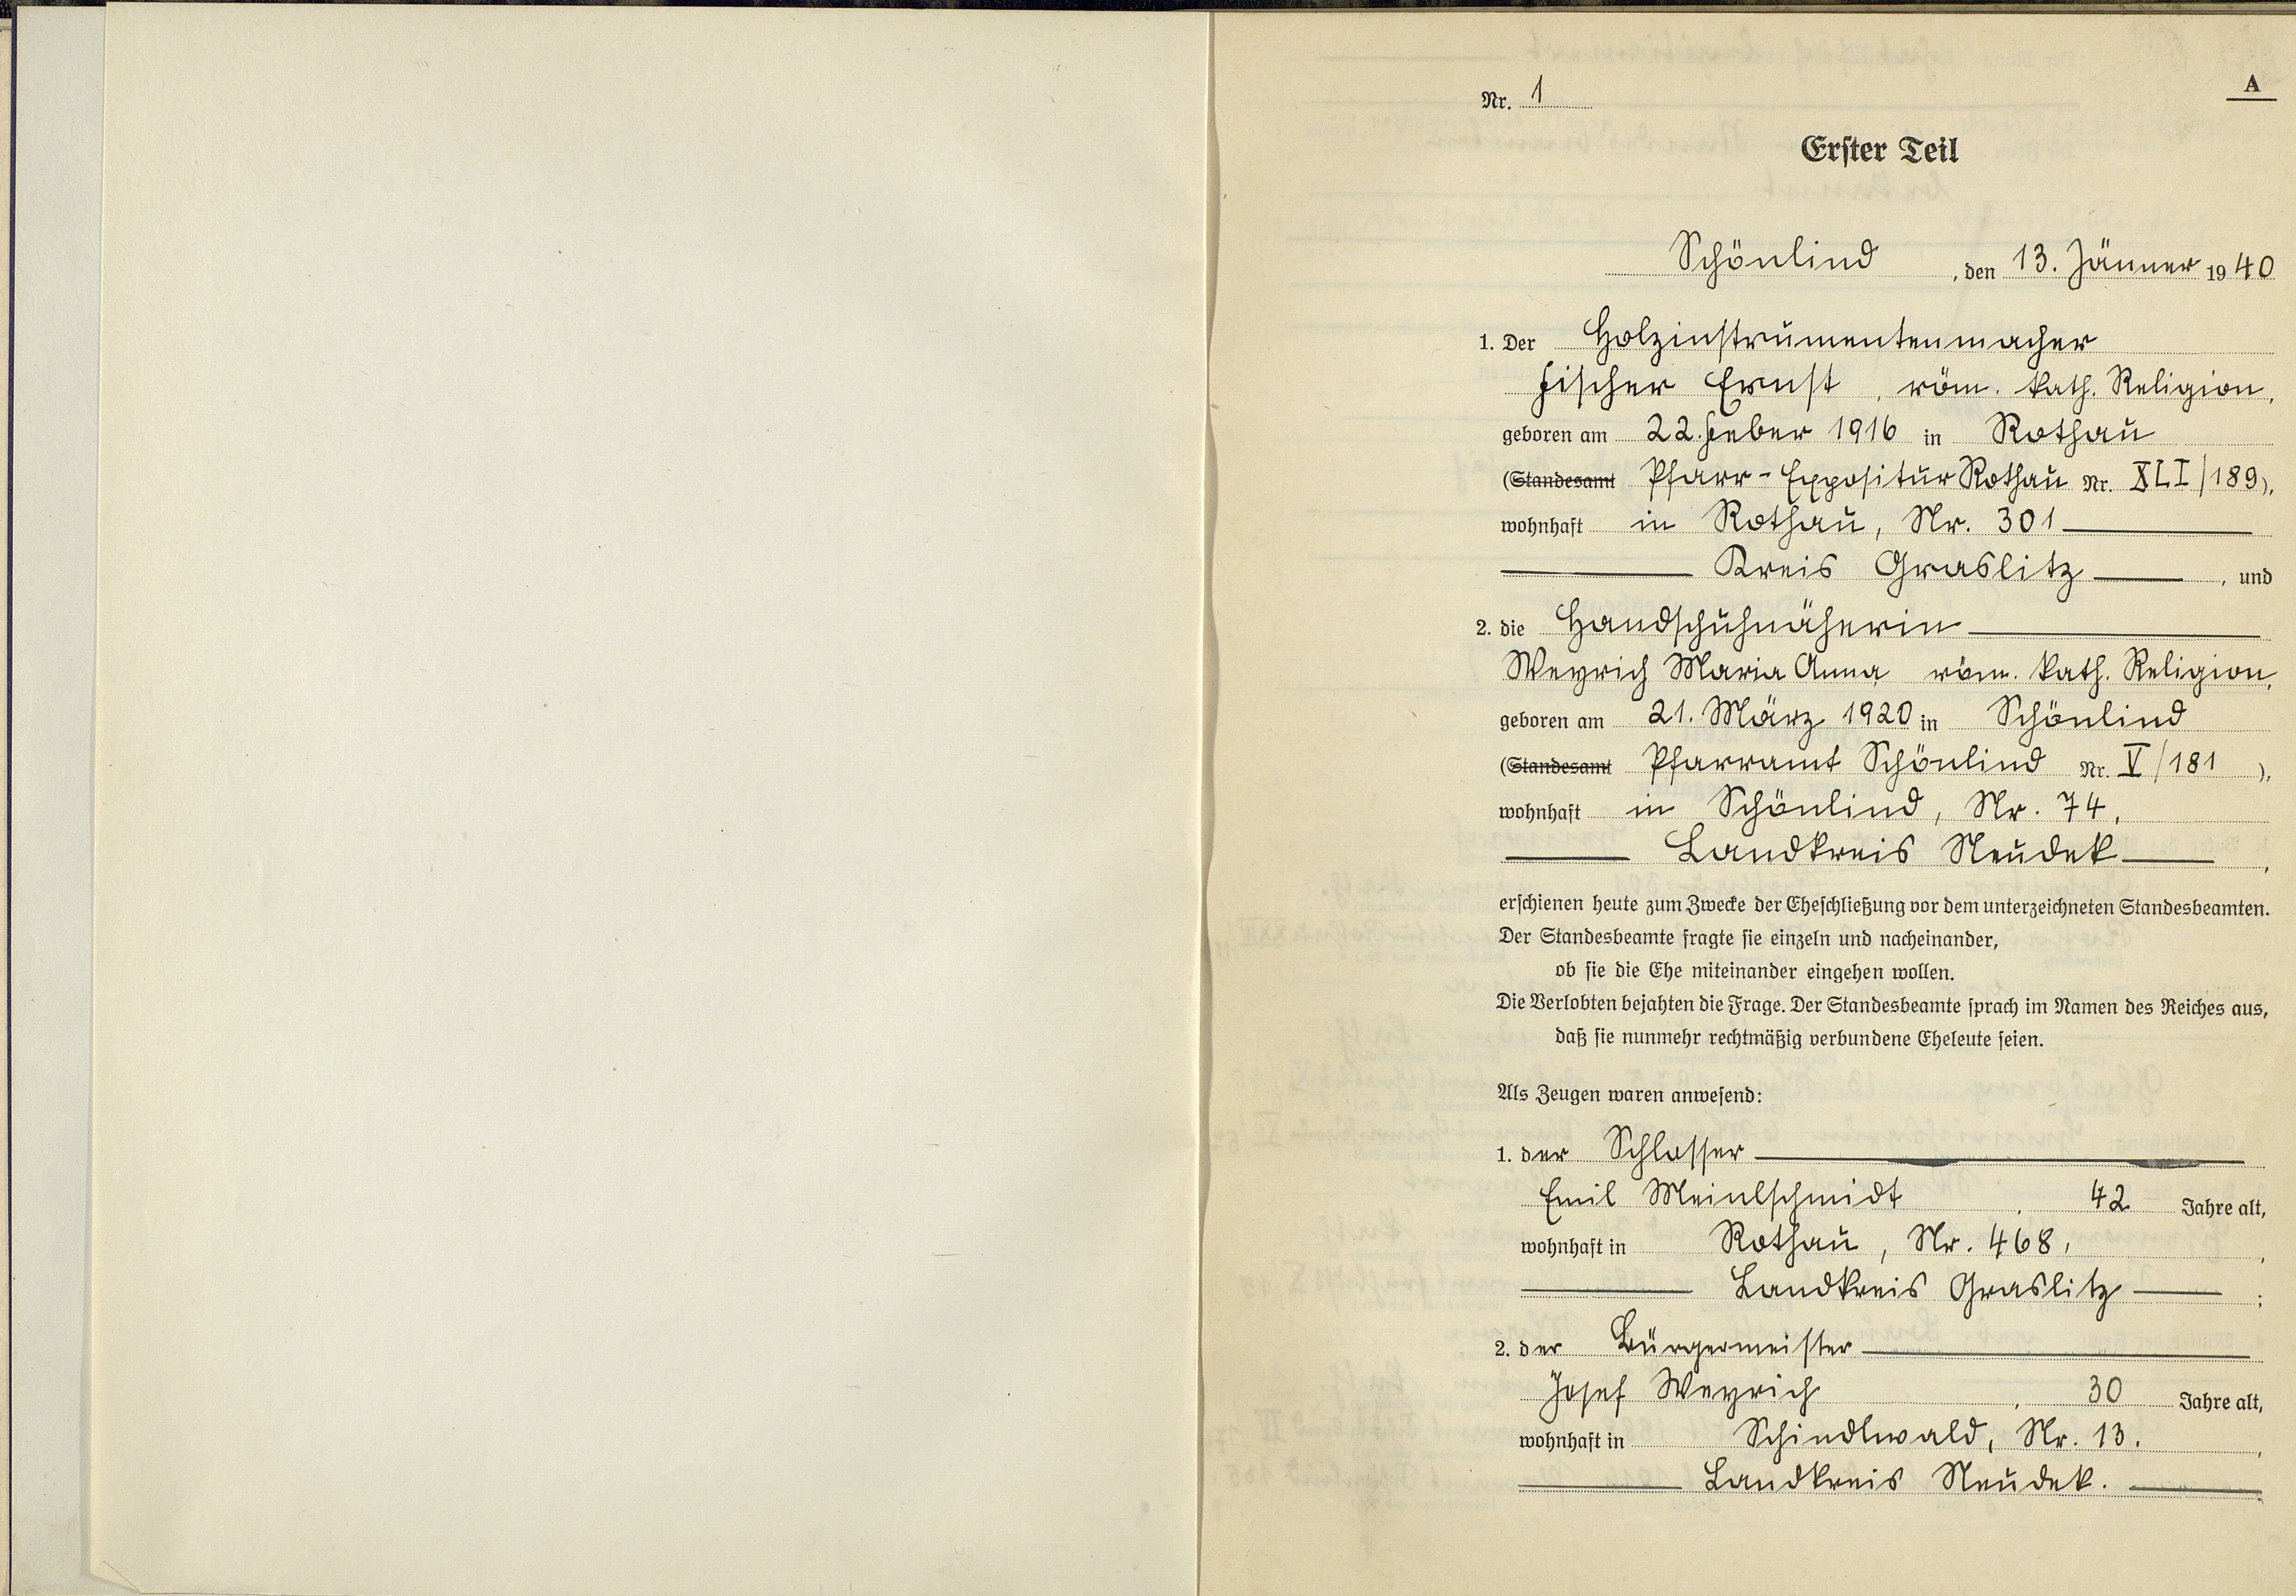 Nr. 1
A
Erster Teil
Schönlind, den 13. Jänner 1940
1. Der Holzinstrumentenmacher
Fischer Ernst, röm. kath. Religion,
geboren am 22. Feber 1916 in Rothau
(Standesamt Pfarr-Expositur Rothau Nr. XLI/189),
wohnhaft in Rothau, Nr. 301
Kreis Graslitz, und
2. die Handschuhnäherin
Weyrich Maria Anna röm. kath. Religion,
geboren am 21. März 1920 in Schönlind
(Standesamt Pfarramt Schönlind Nr. V/181),
wohnhaft in Schönlind, Nr. 74,
Landkreis Neudek,
erschienen heute zum Zwecke der Eheschließung vor dem unterzeichneten Standesbeamten.
Der Standesbeamte fragte sie einzeln und nacheinander,
ob sie die Ehe miteinander eingehen wollen.
Die Verlobten bejahten die Frage. Der Standesbeamte sprach im Namen des Reiches aus,
daß sie nunmehr rechtmäßig verbundene Eheleute seien.
Als Zeugen waren anwesend:
1. der Schlosser
Emil Meinlschmidt, 42 Jahre alt,
wohnhaft in Rothau, Nr. 468,
Landkreis Graslitz;
2. der Bürgermeister
Josef Weyrich, 30 Jahre alt,
wohnhaft in Schindlwald, Nr. 13.,
Landkreis Neudek.